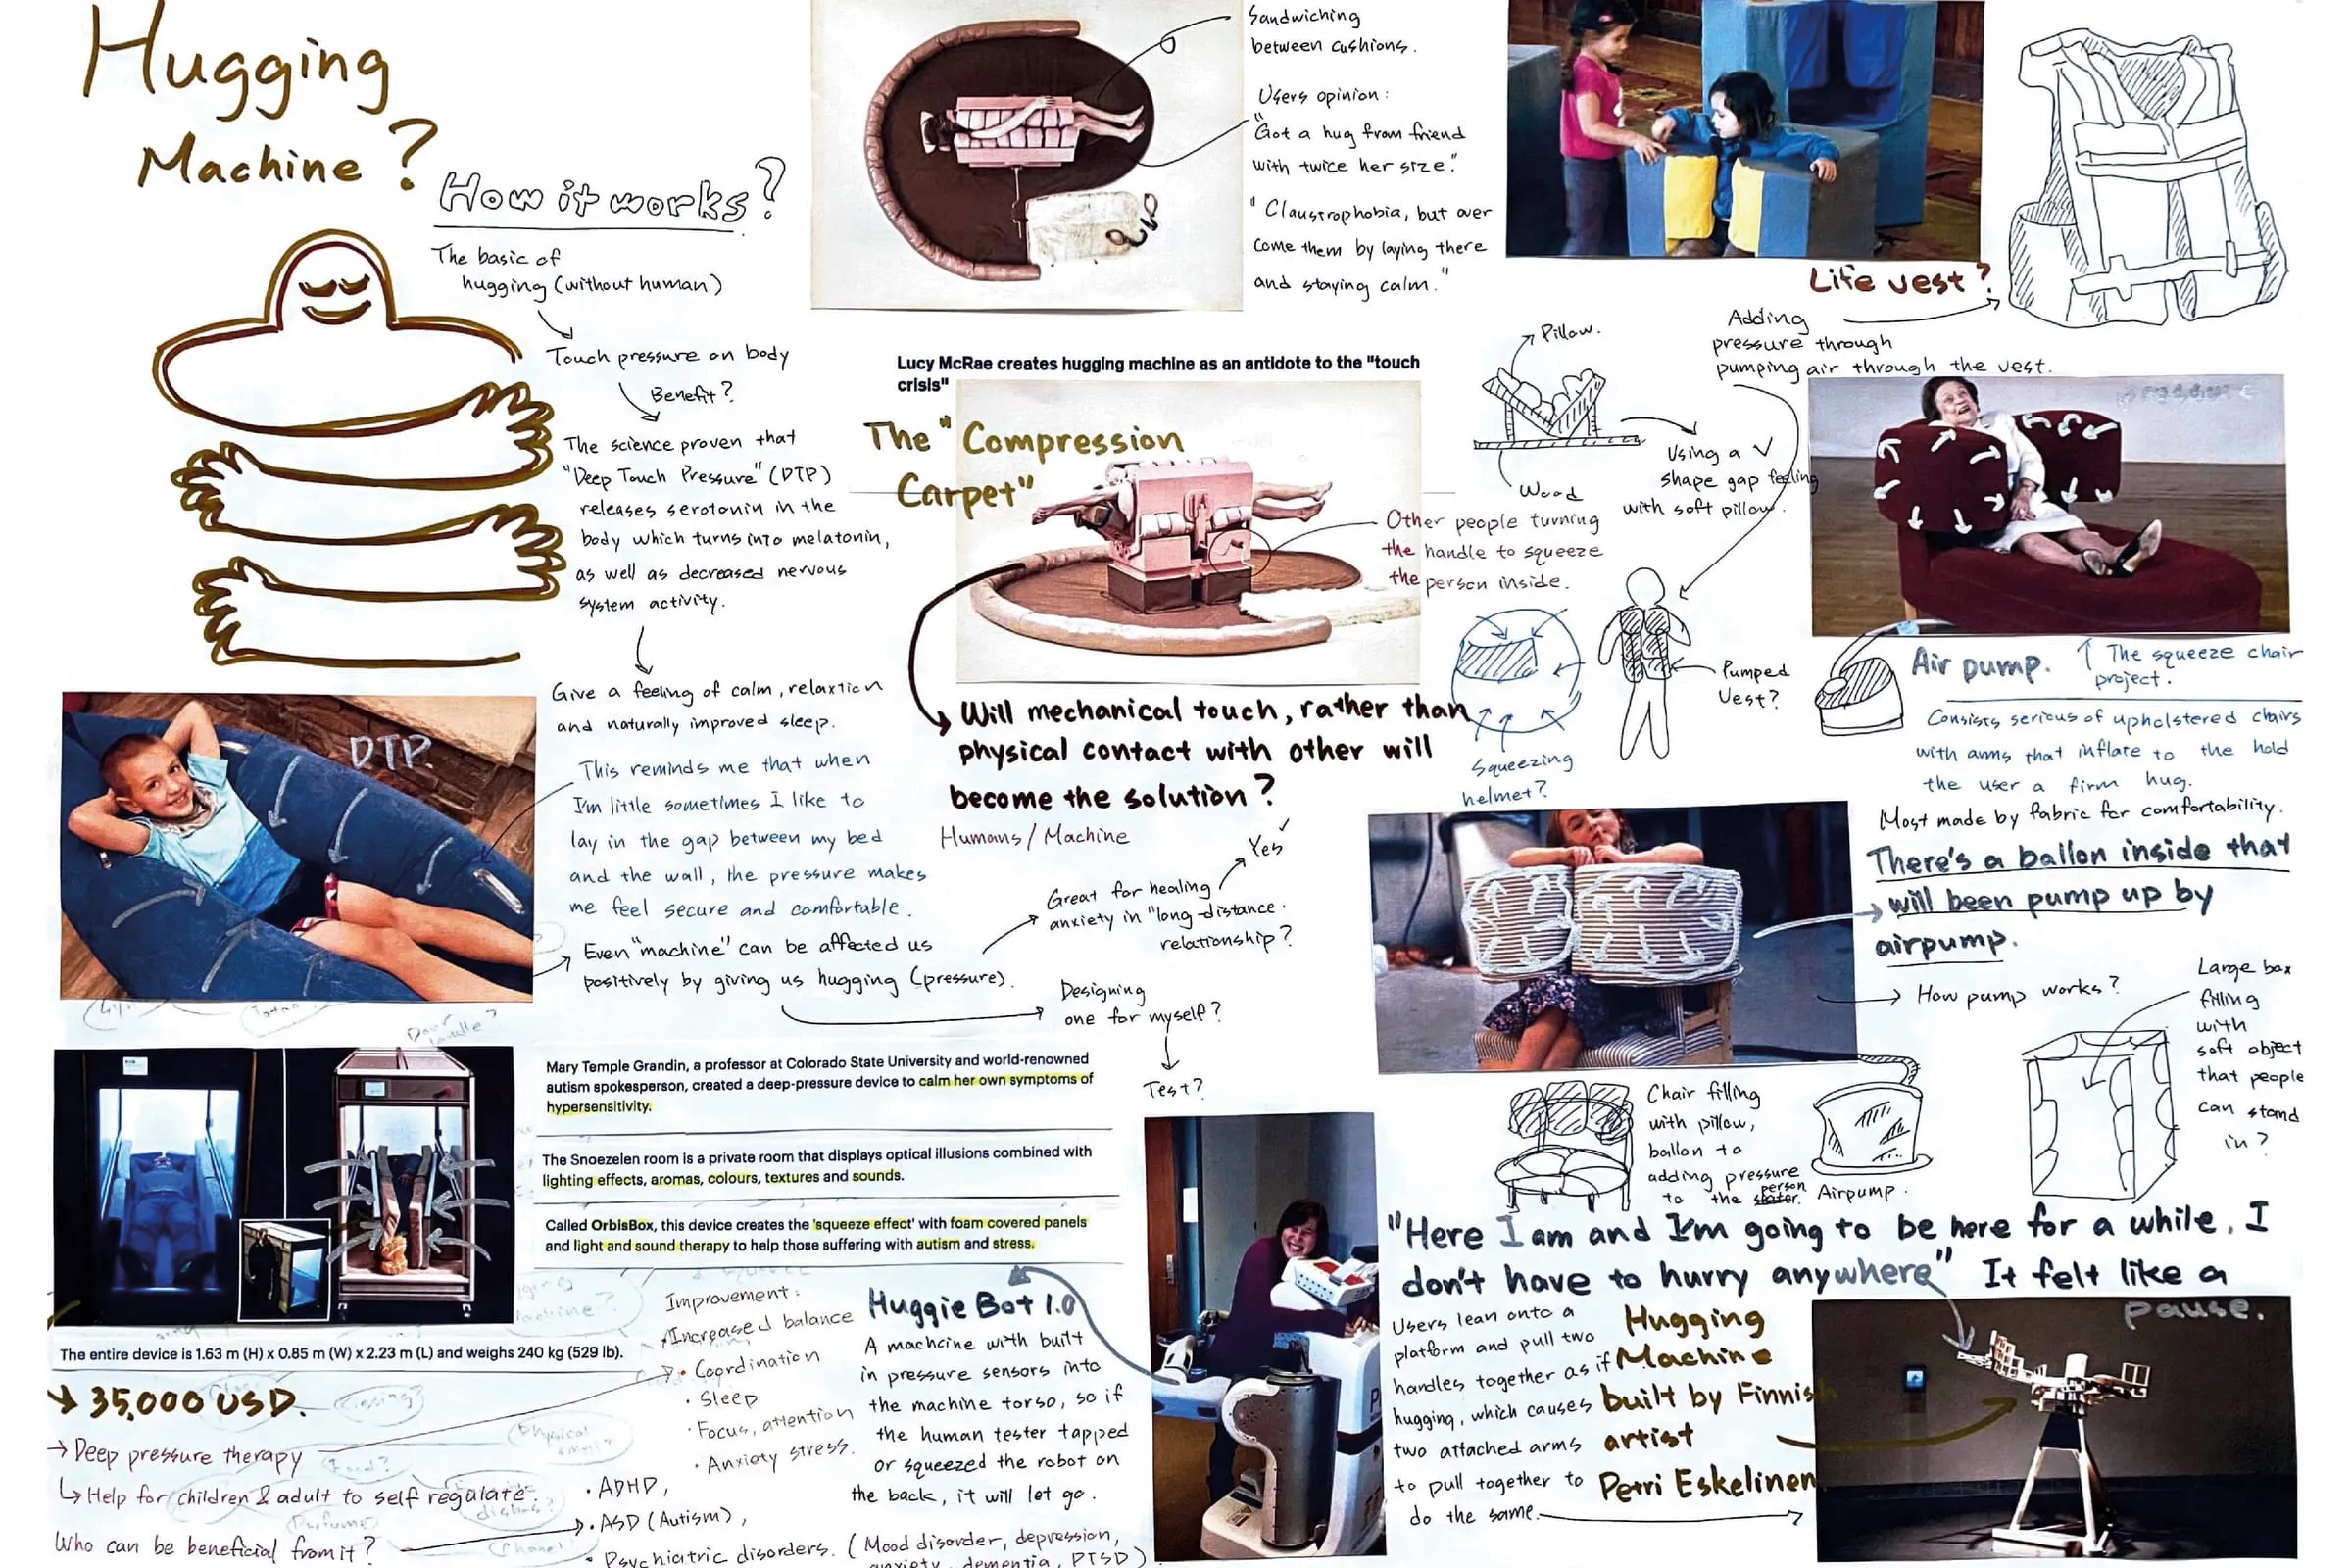 Hugging
Machine?
How it works?
The basic of
hugging (without human)
Touch pressure on body
Benefit?
The science proven that
"Deep Touch Pressure" (DTP)
releases serotonin in the
body which turns into melatonin,
as well as decreased nervous
system activity.
Give a feeling of calm, relaxtion
and naturally improved sleep.
DTP.
This reminds me that when
I'm little sometimes I like to
lay in the gap between my bed
and the wall, the pressure makes
me feel secure and comfortable.
Even "machine" can be affected us
positively by giving us hugging (pressure).
Great for healing
anxiety in "long-distance
relationship?
Yes
Designing
one for myself?
Test?
Sandwiching
between cushions.
Users opinion:
"Got a hug from friend
with twice her size."
"Claustrophobia, but over
come them by laying there
and staying calm."
Lucy McRae creates hugging machine as an antidote to the "touch
crisis"
The "Compression
Carpet"
Other people turning
the handle to squeeze
the person inside.
Will mechanical touch, rather than
physical contact with other will
become the solution?
Humans/Machine
Life vest?
Adding
pressure through
pumping air through the vest.
Pillow.
Wood
Using a V
shape gap feeling
with soft pillow.
Pumped
Vest?
Squeezing
helmet?
Air pump.
The squeeze chair
project.
Consists serious of upholstered chairs
with arms that inflate to the hold
the user a firm hug.
Most made by fabric for comfortability.
There's a ballon inside that
will been pump up by
airpump.
How pump works?
Large box
filling
with
soft object
that people
can stand
in?
Chair filling
with pillow,
ballon to
adding pressure
to the person
Airpump.
Mary Temple Grandin, a professor at Colorado State University and world-renowned
autism spokesperson, created a deep-pressure device to calm her own symptoms of
hypersensitivity.
The Snoezelen room is a private room that displays optical illusions combined with
lighting effects, aromas, colours, textures and sounds.
Called OrbisBox, this device creates the 'squeeze effect' with foam covered panels
and light and sound therapy to help those suffering with autism and stress.
The entire device is 1.63 m (H) x 0.85 m (W) x 2.23 m (L) and weighs 240 kg (529 lb).
35,000 USD.
Deep pressure therapy
Help for children & adult to self regulate.
Who can be beneficial from it?
Improvement:
Increased balance
· Coordination
· Sleep
· Focus, attention
· Anxiety stress.
· ADHD,
· ASD (Autism),
· Psychiatric disorders. (Mood disorder, depression,
anxiety, dementia, PTSD)
Huggie Bot 1.0
A machcine with built
in pressure sensors into
the machine torso, so if
the human tester tapped
or squeezed the robot on
the back, it will let go.
"Here I am and I'm going to be here for a while, I
don't have to hurry anywhere" It felt like a
pause.
Users lean onto a
platform and pull two
handles together as if
hugging, which causes
two attached arms
to pull together to
do the same.
Hugging
Machine
built by Finnish
artist
Petri Eskelinen